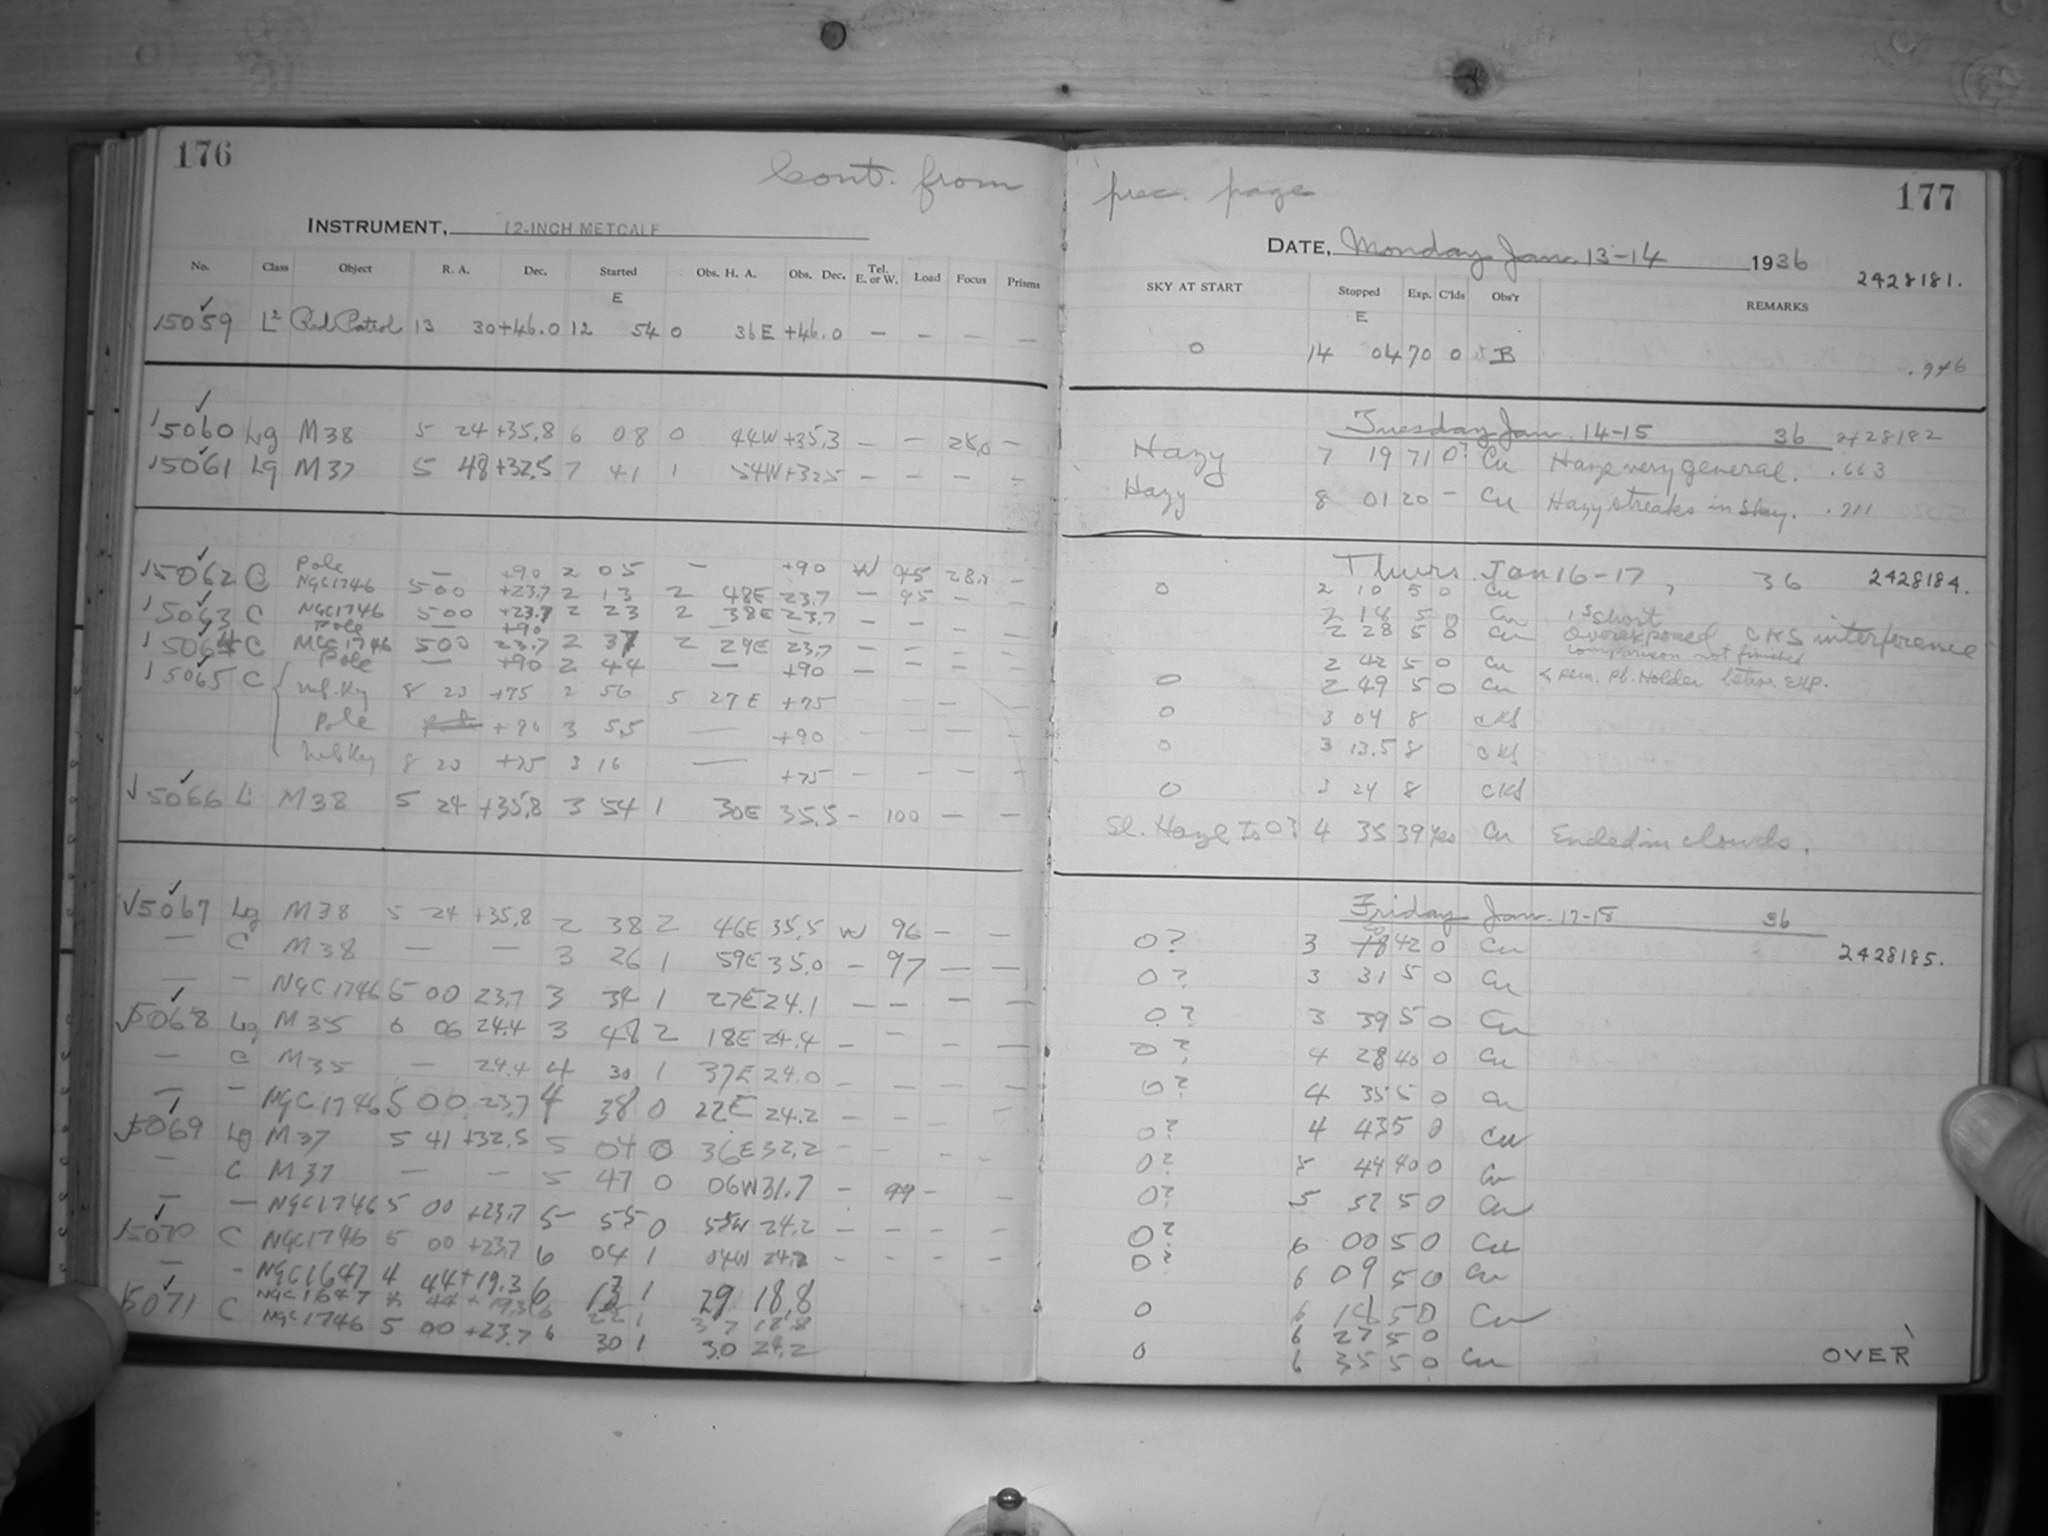 176
Cont. from
INSTRUMENT, 12-INCH METCALF
No. Class Object R. A. Dec. Started Obs. H. A. Obs. Dec. Tel. E. or W. Load Focus Prisms
E
15059 L2 Red Patrol 13 30 +46.0 12 54 0 36E +46.0 — — — —
15060 Lg M38 5 24 +35.8 6 08 0 44W +35.3 — — —
15061 Lg M37 5 48 +32.5 7 41 1 54W +32.5 — — — —
15062 C Pole — +90 2 05 — +90 W 95 —
NGC1746 5 00 +23.7 2 13 2 48E 23.7 — 95 — —
15063 C NGC1746 5 00 +23.7 2 23 2 38E 23.7 — — — —
Pole — +90 —
15064 C NGC 1746 5 00 23.7 2 37 2 24E 23.7 — — — —
Pole — +90 2 44 — +90 — — — —
15065 C 8 23 +75 2 56 5 27E +75 — — —
Pole +90 3 5.5 — +90 — — — —
8 23 +75 3 16 — +75 — — — —
15066 L M38 5 24 +35.8 3 54 1 30E 35.5 — 100 — —
15067 Lg M38 5 24 +35.8 2 38 2 46E 35.5 W 96 — —
— C M38 — — 3 26 1 59E 35.0 — 97 — —
— — NGC1746 5 00 23.7 3 34 1 27E 24.1 — — — —
15068 Lg M35 6 06 24.4 3 48 2 18E 24.4 — — —
— C M35 — 24.4 4 30 1 37E 24.0 — — — —
— — NGC1746 5 00 23.7 4 38 0 22E 24.2 — — —
15069 Lg M37 5 41 +32.5 5 04 0 36E 32.2 — — — —
— C M37 — — 5 47 0 06W 31.7 — 99 — —
— — NGC1746 5 00 +23.7 5 55 0 24.2 — — — —
15070 C NGC1746 5 00 +23.7 6 04 1 04W 24.2 — — — —
— — NGC1647 4 44 +19.3 6 13 1 29 18.8
15071 C NGC1647 4 44 +19.3 6 22 1 37 18.8
NGC1746 5 00 +23.7 6 30 1 30 24.2
prec. page
177
DATE, Monday Jan. 13-14 1936
2428181.
SKY AT START Stopped Exp. C'lds Obs'r REMARKS
E
0 14 04 70 0 B
.946
Tuesday Jan. 14-15 36 2428182
Hazy 7 19 71 0? Cu Haze very general. .663
Hazy 8 01 20 — Cu Hazy streaks in sky. .711
Thurs. Jan 16-17, 36 2428184.
0 2 10 5 0 Cu
2 18 5 0 Cu 1s short
2 28 5 0 Cu Overexposed CKS interference
comparison not finished
2 42 5 0 Cu
0 2 49 5 0 Cu
0 3 04 8 CKS
0 3 13.5 8 CKS
0 3 24 8 CKS
Sl. Haze to 0? 4 35 39 Yes Cu Ended in clouds.
Friday Jan. 17-18 36
2428185.
0? 3 20 42 0 Cu
0? 3 31 5 0 Cu
0? 3 39 5 0 Cu
0? 4 28 40 0 Cu
0? 4 35 5 0 Cu
0? 4 43 5 0 Cu
0? 5 44 40 0 Cu
0? 5 52 5 0 Cu
0? 6 00 5 0 Cu
0? 6 09 5 0 Cu
0 6 18 5 0 Cu
6 27 5 0
0 6 35 5 0 Cu
OVER